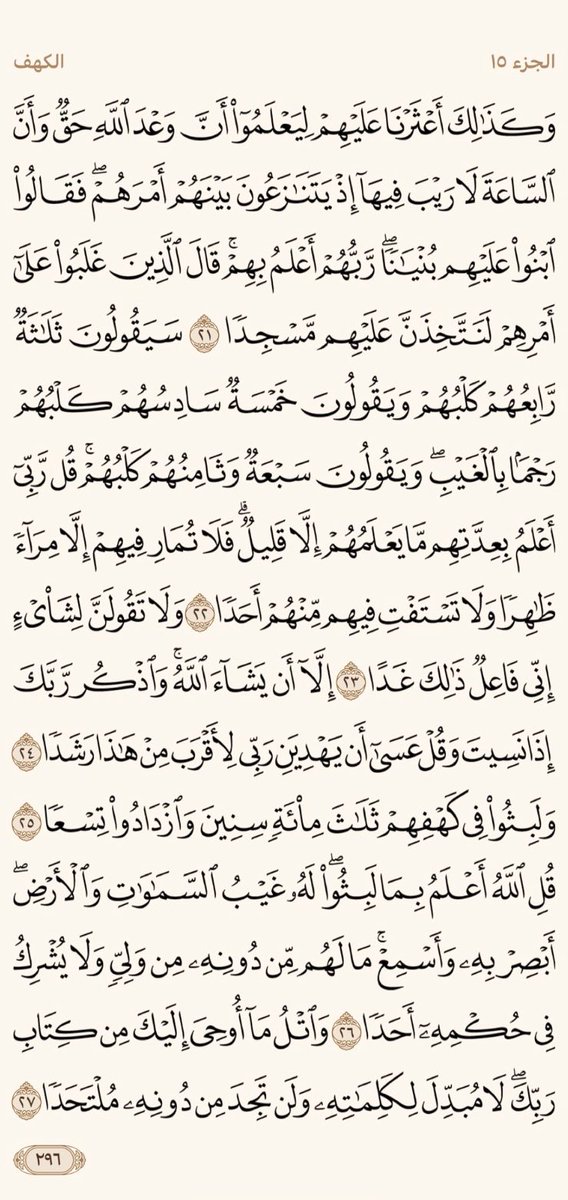 الجزء ١٥ الكهف
وَكَذَٰلِكَ أَعْثَرْنَا عَلَيْهِمْ لِيَعْلَمُوٓا۟ أَنَّ وَعْدَ ٱللَّهِ حَقٌّ وَأَنَّ
ٱلسَّاعَةَ لَا رَيْبَ فِيهَآ إِذْ يَتَنَٰزَعُونَ بَيْنَهُمْ أَمْرَهُمْ ۖ فَقَالُوا۟
ٱبْنُوا۟ عَلَيْهِم بُنْيَٰنًا ۖ رَّبُّهُمْ أَعْلَمُ بِهِمْ ۚ قَالَ ٱلَّذِينَ غَلَبُوا۟ عَلَىٰٓ
أَمْرِهِمْ لَنَتَّخِذَنَّ عَلَيْهِم مَّسْجِدًا ٢١ سَيَقُولُونَ ثَلَٰثَةٌ
رَّابِعُهُمْ كَلْبُهُمْ وَيَقُولُونَ خَمْسَةٌ سَادِسُهُمْ كَلْبُهُمْ
رَجْمًۢا بِٱلْغَيْبِ ۖ وَيَقُولُونَ سَبْعَةٌ وَثَامِنُهُمْ كَلْبُهُمْ ۚ قُل رَّبِّىٓ
أَعْلَمُ بِعِدَّتِهِم مَّا يَعْلَمُهُمْ إِلَّا قَلِيلٌ ۗ فَلَا تُمَارِ فِيهِمْ إِلَّا مِرَآءً
ظَٰهِرًا وَلَا تَسْتَفْتِ فِيهِم مِّنْهُمْ أَحَدًا ٢٢ وَلَا تَقُولَنَّ لِشَا۟ىْءٍ
إِنِّى فَاعِلٌ ذَٰلِكَ غَدًا ٢٣ إِلَّآ أَن يَشَآءَ ٱللَّهُ ۚ وَٱذْكُر رَّبَّكَ
إِذَا نَسِيتَ وَقُلْ عَسَىٰٓ أَن يَهْدِيَنِ رَبِّى لِأَقْرَبَ مِنْ هَٰذَا رَشَدًا ٢٤
وَلَبِثُوا۟ فِى كَهْفِهِمْ ثَلَٰثَ مِا۟ئَةٍ سِنِينَ وَٱزْدَادُوا۟ تِسْعًا ٢٥
قُلِ ٱللَّهُ أَعْلَمُ بِمَا لَبِثُوا۟ ۖ لَهُۥ غَيْبُ ٱلسَّمَٰوَٰتِ وَٱلْأَرْضِ ۖ
أَبْصِرْ بِهِۦ وَأَسْمِعْ ۚ مَا لَهُم مِّن دُونِهِۦ مِن وَلِىٍّ وَلَا يُشْرِكُ
فِى حُكْمِهِۦٓ أَحَدًا ٢٦ وَٱتْلُ مَآ أُوحِىَ إِلَيْكَ مِن كِتَابِ
رَبِّكَ ۖ لَا مُبَدِّلَ لِكَلِمَٰتِهِۦ وَلَن تَجِدَ مِن دُونِهِۦ مُلْتَحَدًا ٢٧
٢٩٦